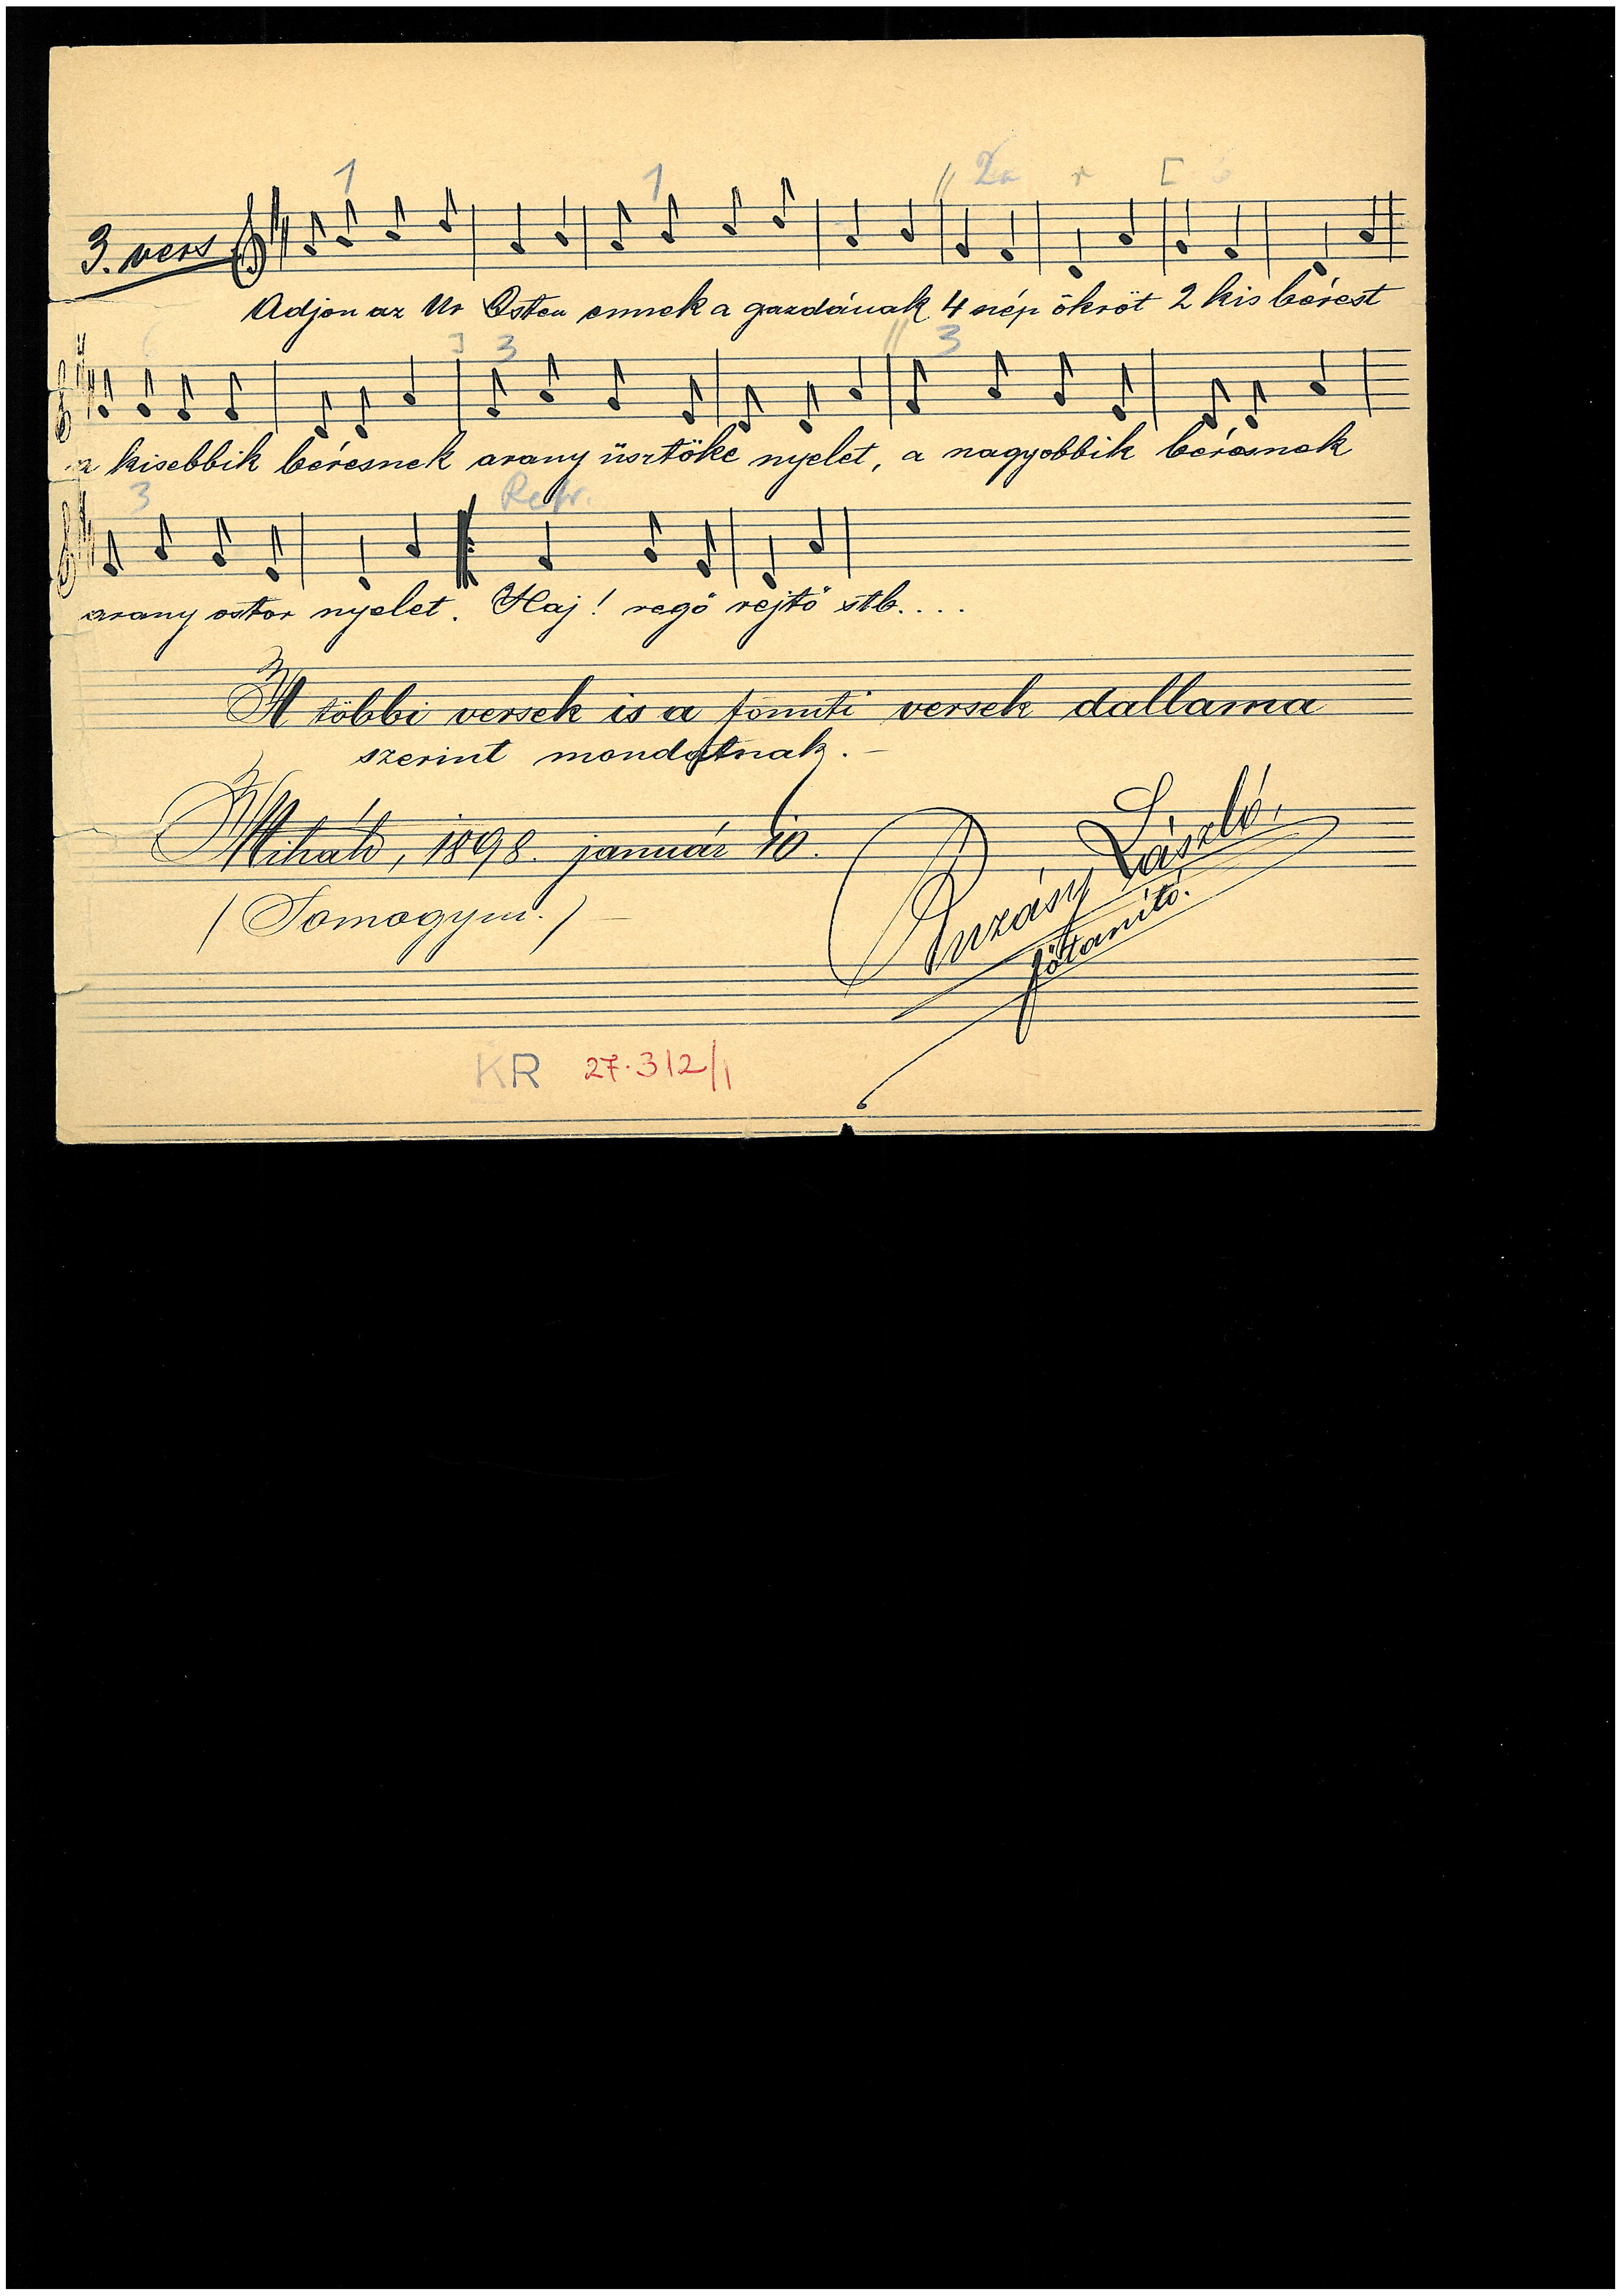 1 1 2a r [ 6
3. vers
Adjon az Ur Isten ennek a gazdának 4 szép ökröt 2 kis bérest
3 3
a kisebbik béresnek arany üsztöke nyelet, a nagyobbik béresnek
3 Refr.
arany ostor nyelet. Haj! regő rejtő stb....
A többi versek is a fönnti versek dallama
szerint mondatnak. –
Miháld, 1898. január 10.
(Somogym.) –
László,
főtanító.
KR 27.312/1